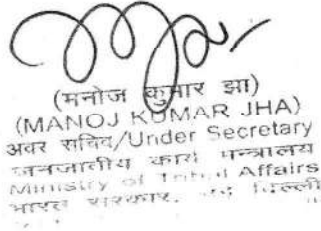 (मनोज कुमार झा)
(MANOJ KUMAR JHA)
अवर सचिव/Under Secretary
जनजातीय कार्य मन्त्रालय
Ministry of Tribal Affairs
भारत सरकार, नई दिल्ली